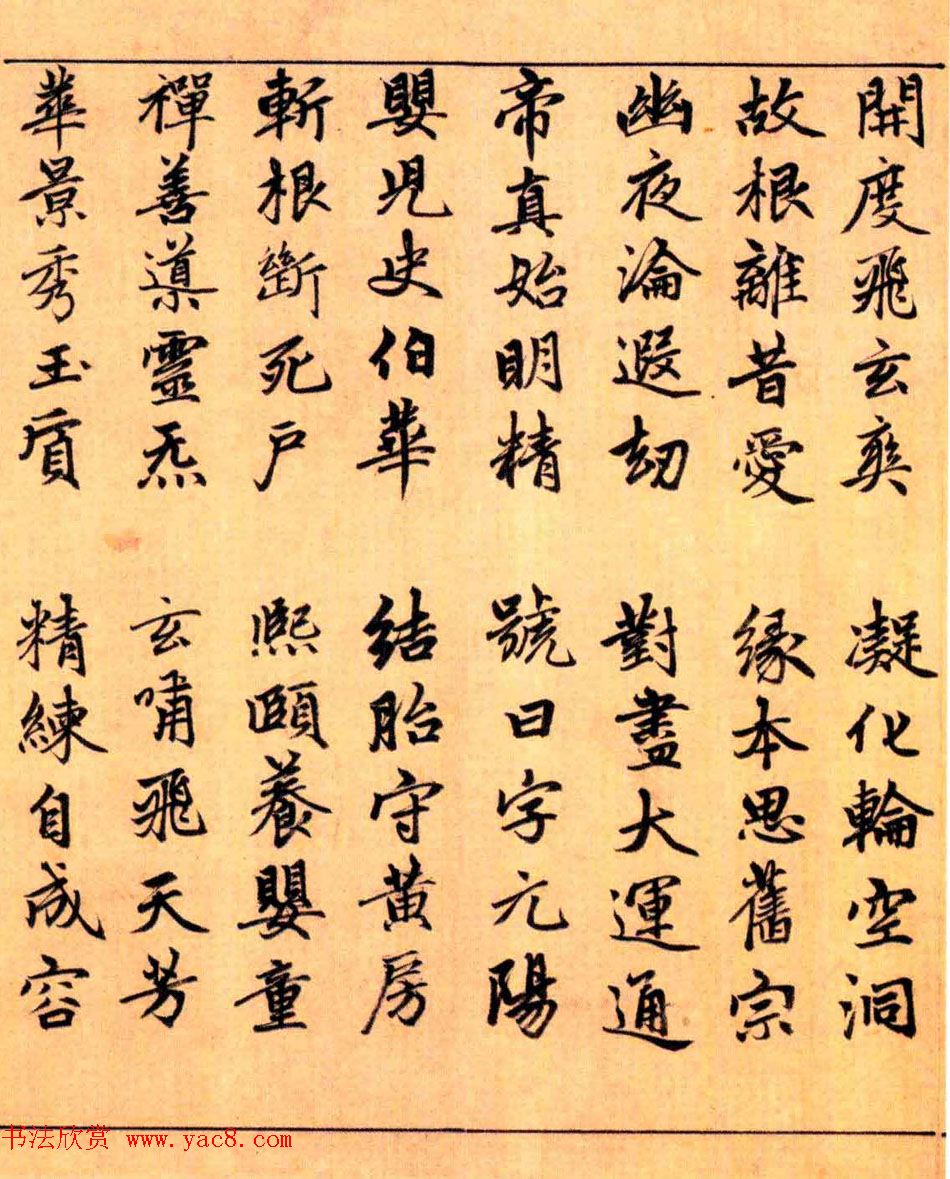 開度飛玄爽 凝化輪空洞
故根離昔愛 緣本思舊宗
幽夜淪遐劫 對盡大運通
帝真始明精 號曰字元陽
嬰兒史伯華 結胎守黃房
斬根斷死戶 熙頤養嬰童
禪善導靈炁 玄嘯飛天芳
華景秀玉質 精練自成容
书法欣赏 www.yac8.com